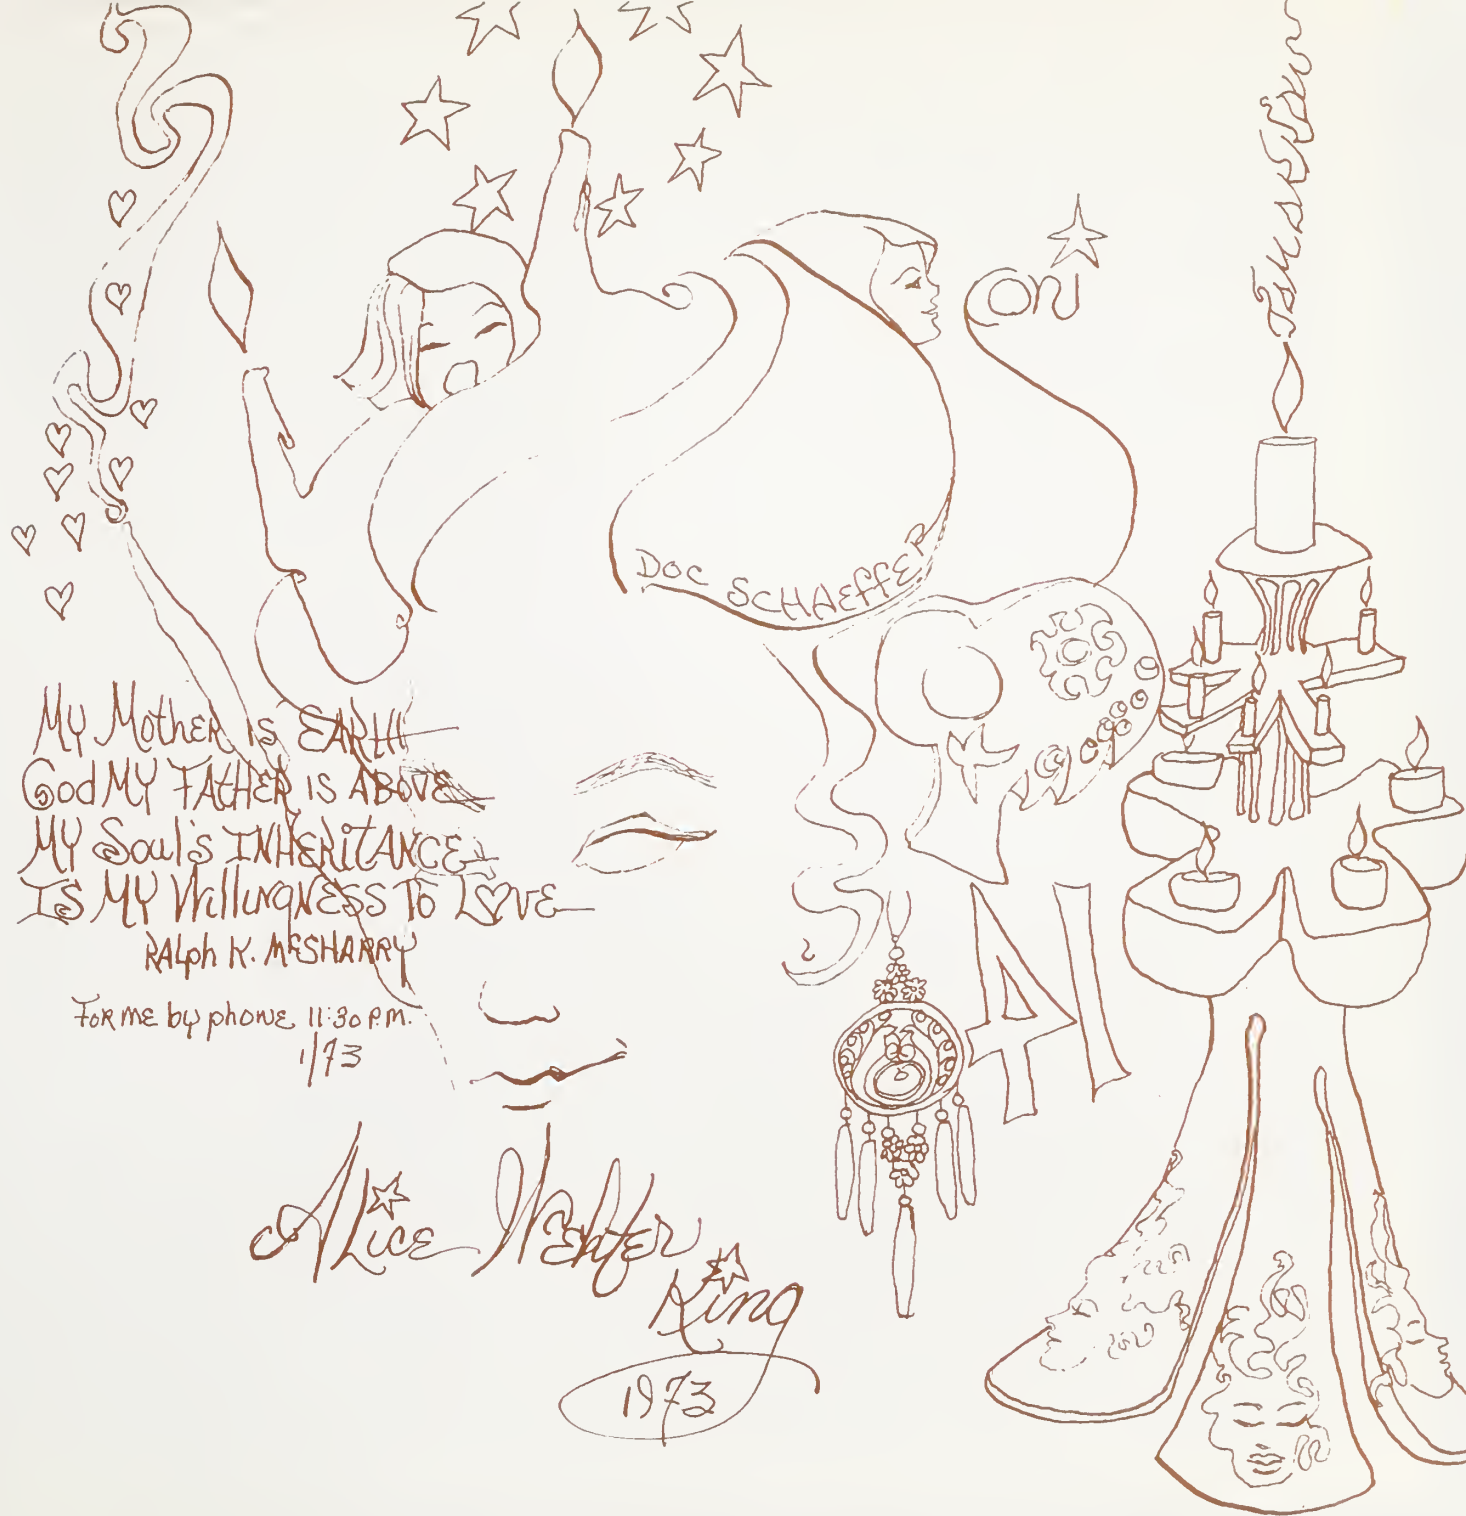 on
DOC SCHAEFFER
MY MotHER is EARtH
God MY FAtHER is ABOVE
MY Soul's INHERitANCE
IS MY WilliNgNESS To LOVE
RALph K. McSHARRY
FoR mE by phoNE 11:30 P.M.
1/73
AL
ALicE
King
1973